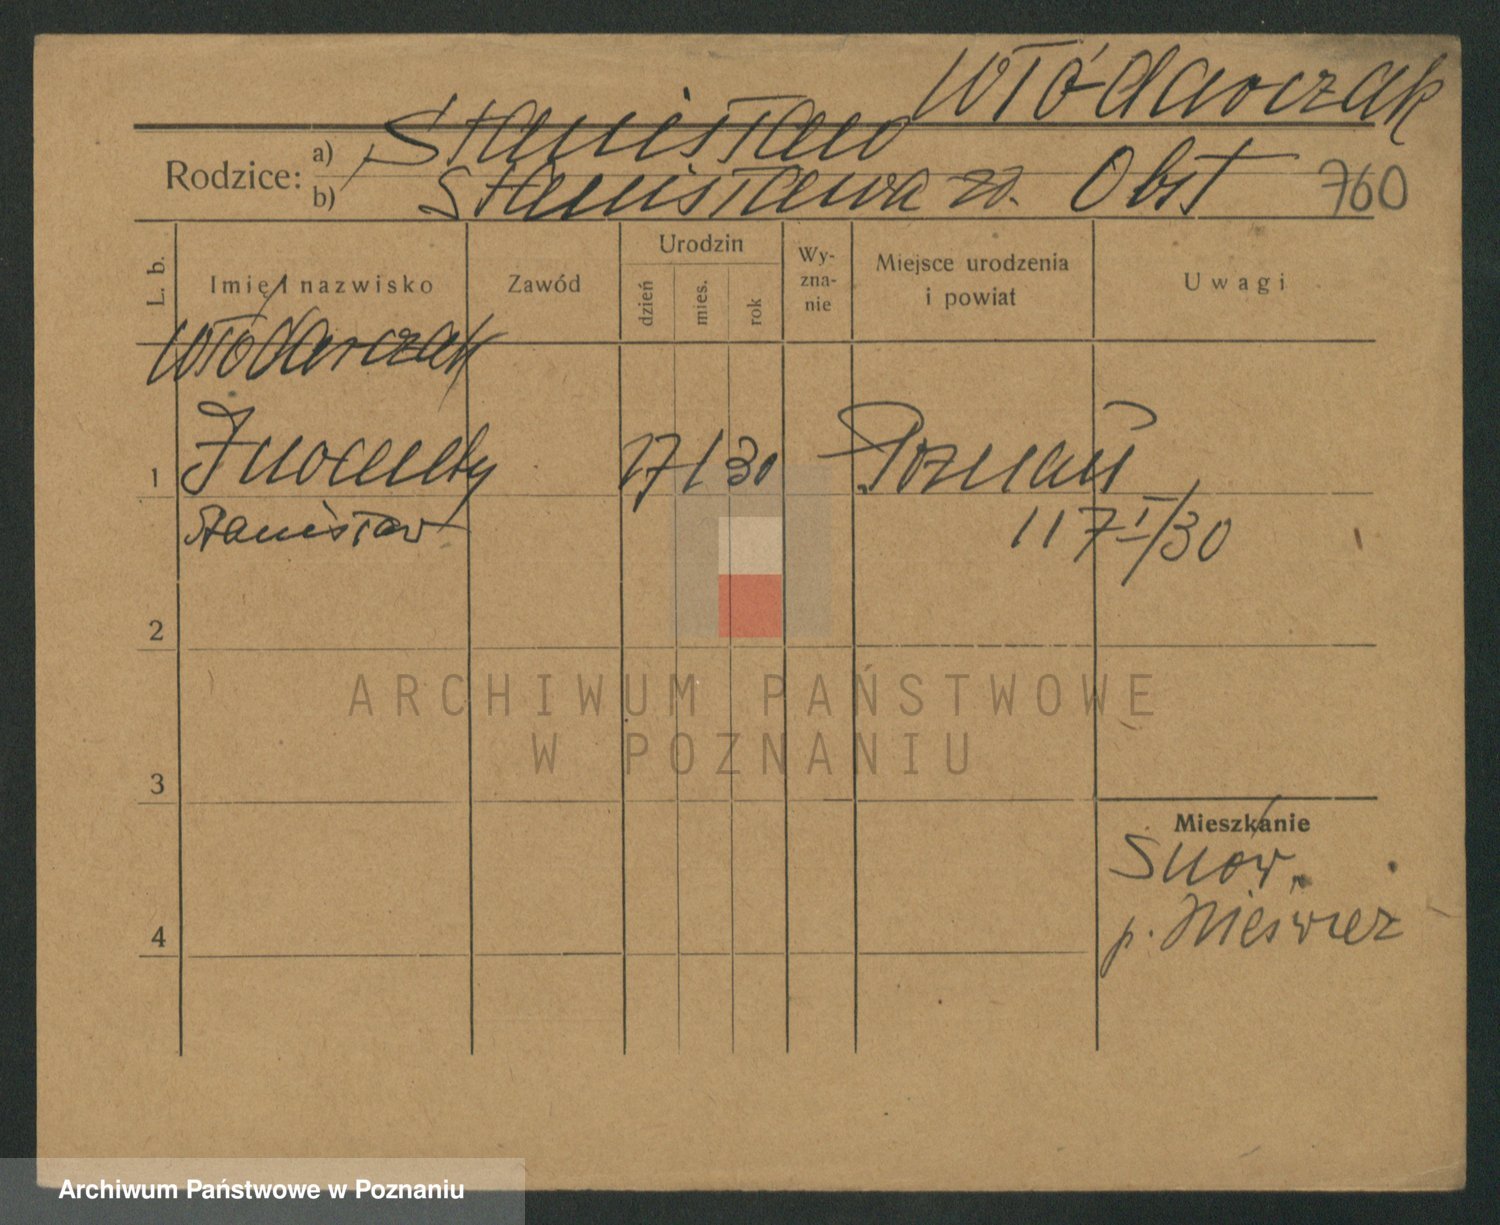 Włódarczak
Rodzice: a) Stanisław
b) Stanisława z d. Obst 760
L. b. Imię i nazwisko Zawód Urodzin dzień mies. rok Wy-zna-nie Miejsce urodzenia i powiat Uwagi
Włódarczak
1 Inocenty 17/1 30 Poznań
Stanisław 117 I/30
2
3
Mieszkanie
Snów.
4 p. Nieśwież
ARCHIWUM PAŃSTWOWE
W POZNANIU
Archiwum Państwowe w Poznaniu